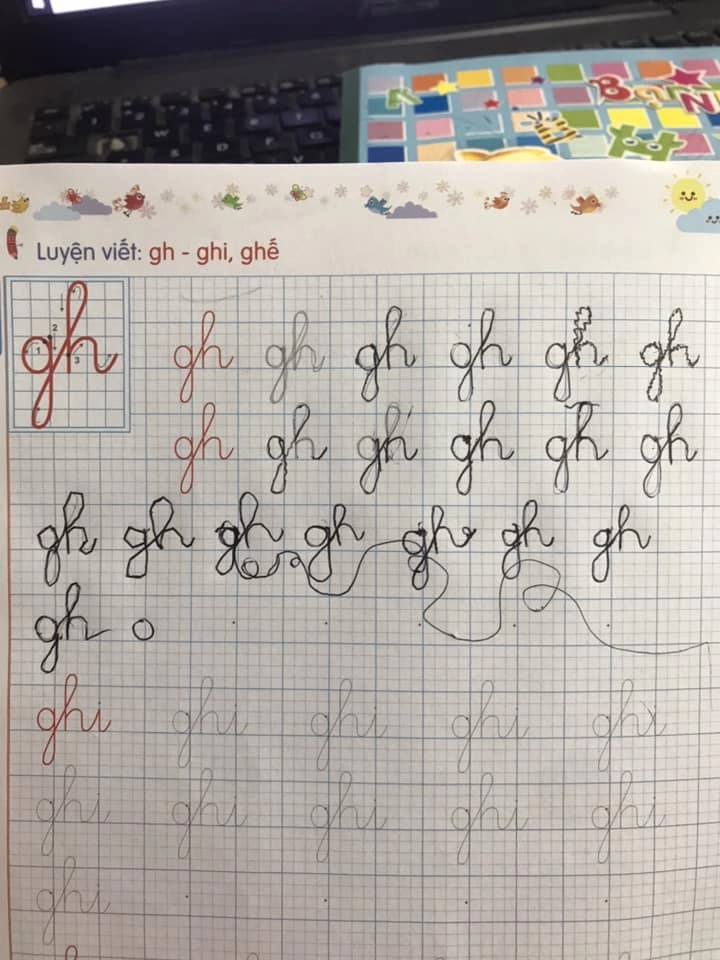 Luyện viết: gh - ghi, ghế
gh gh gh gh gh gh gh
gh gh gh gh gh gh
gh gh gh gh gh gh gh
gh o
ghi ghi ghi ghi ghi
ghi ghi ghi ghi ghi
ghi